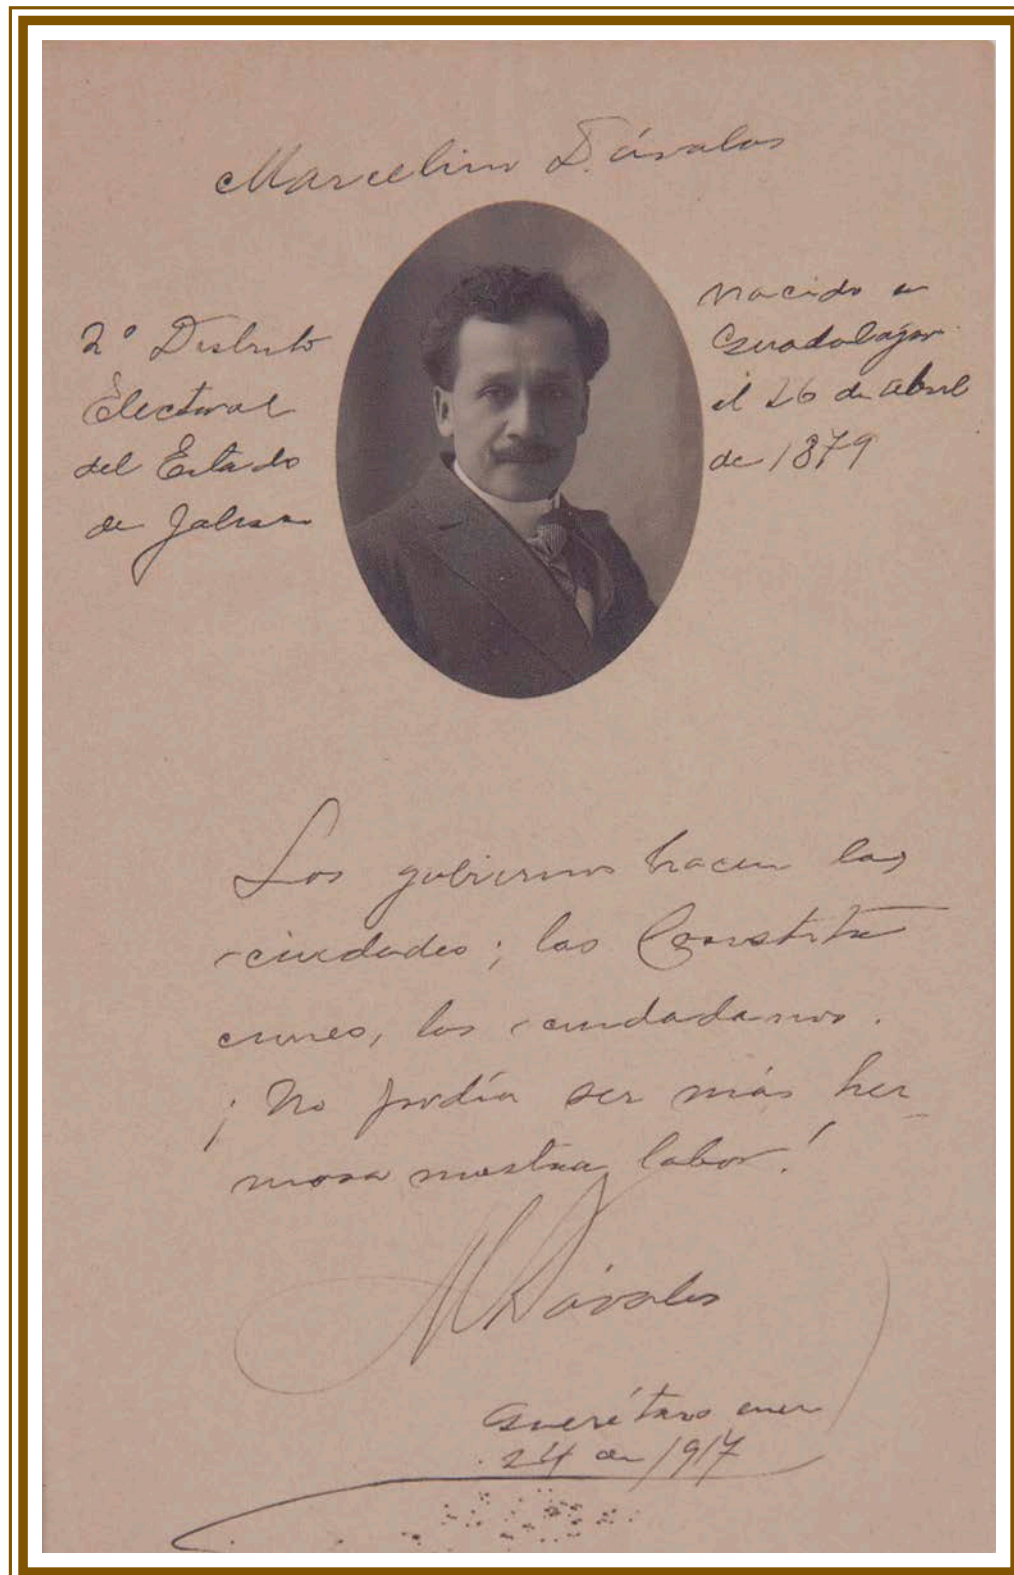 Marcelino Dávalos
2º Distrito
Electoral
del Estado
de Jalisco
Nacido en
Guadalajara
el 26 de abril
de 1879
Los gobiernos hacen las
ciudades; las Constitu
ciones, los ciudadanos.
¡No podía ser más her
mosa nuestra labor!
MDávalos
Querétaro enero
24 de 1917